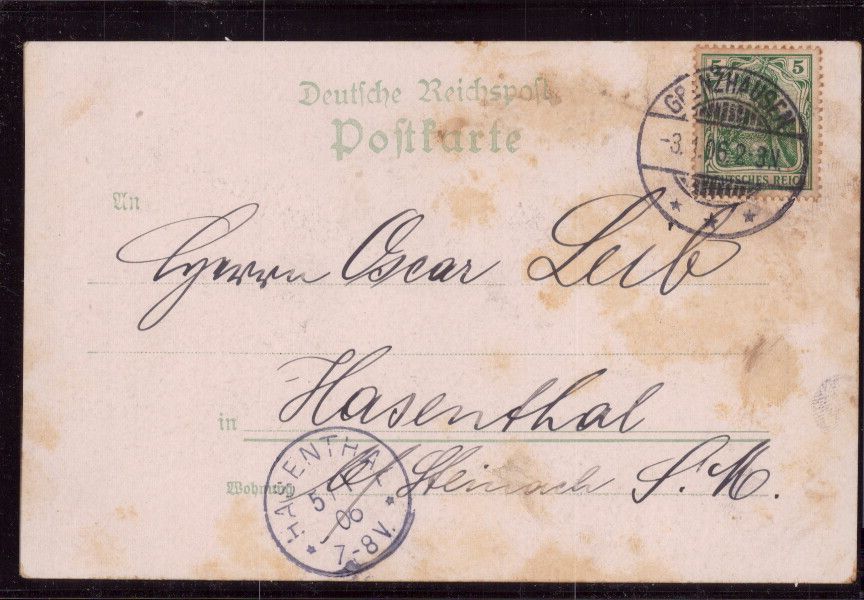 Deutsche Reichspost
Postkarte
5 5
DEUTSCHES REICH
GRENZHAUSEN
-3.1.06.2-3N.
An
Herrn Oscar Leib
in Hasenthal
Wohnung bei Steinach S. M.
HASENTHAL
5/1
06
7-8V.